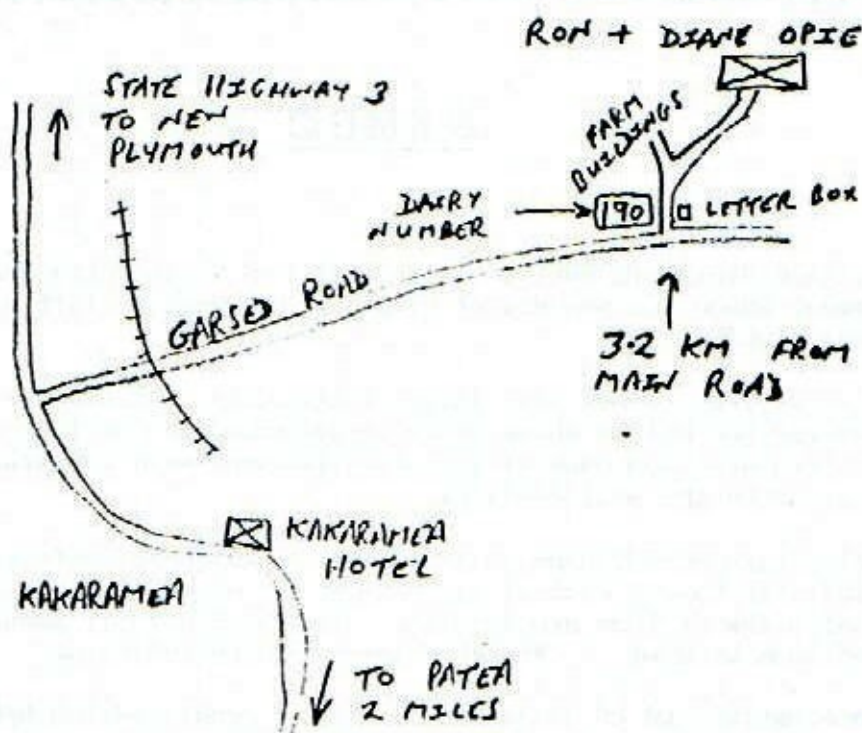 RON + DIANE OPIE
STATE HIGHWAY 3
TO NEW
PLYMOUTH
FARM
BUILDINGS
DAIRY
NUMBER
190
LETTER BOX
GARSED ROAD
3.2 KM FROM
MAIN ROAD
KAKARAMEA
HOTEL
KAKARAMEA
TO PATEA
2 MILES